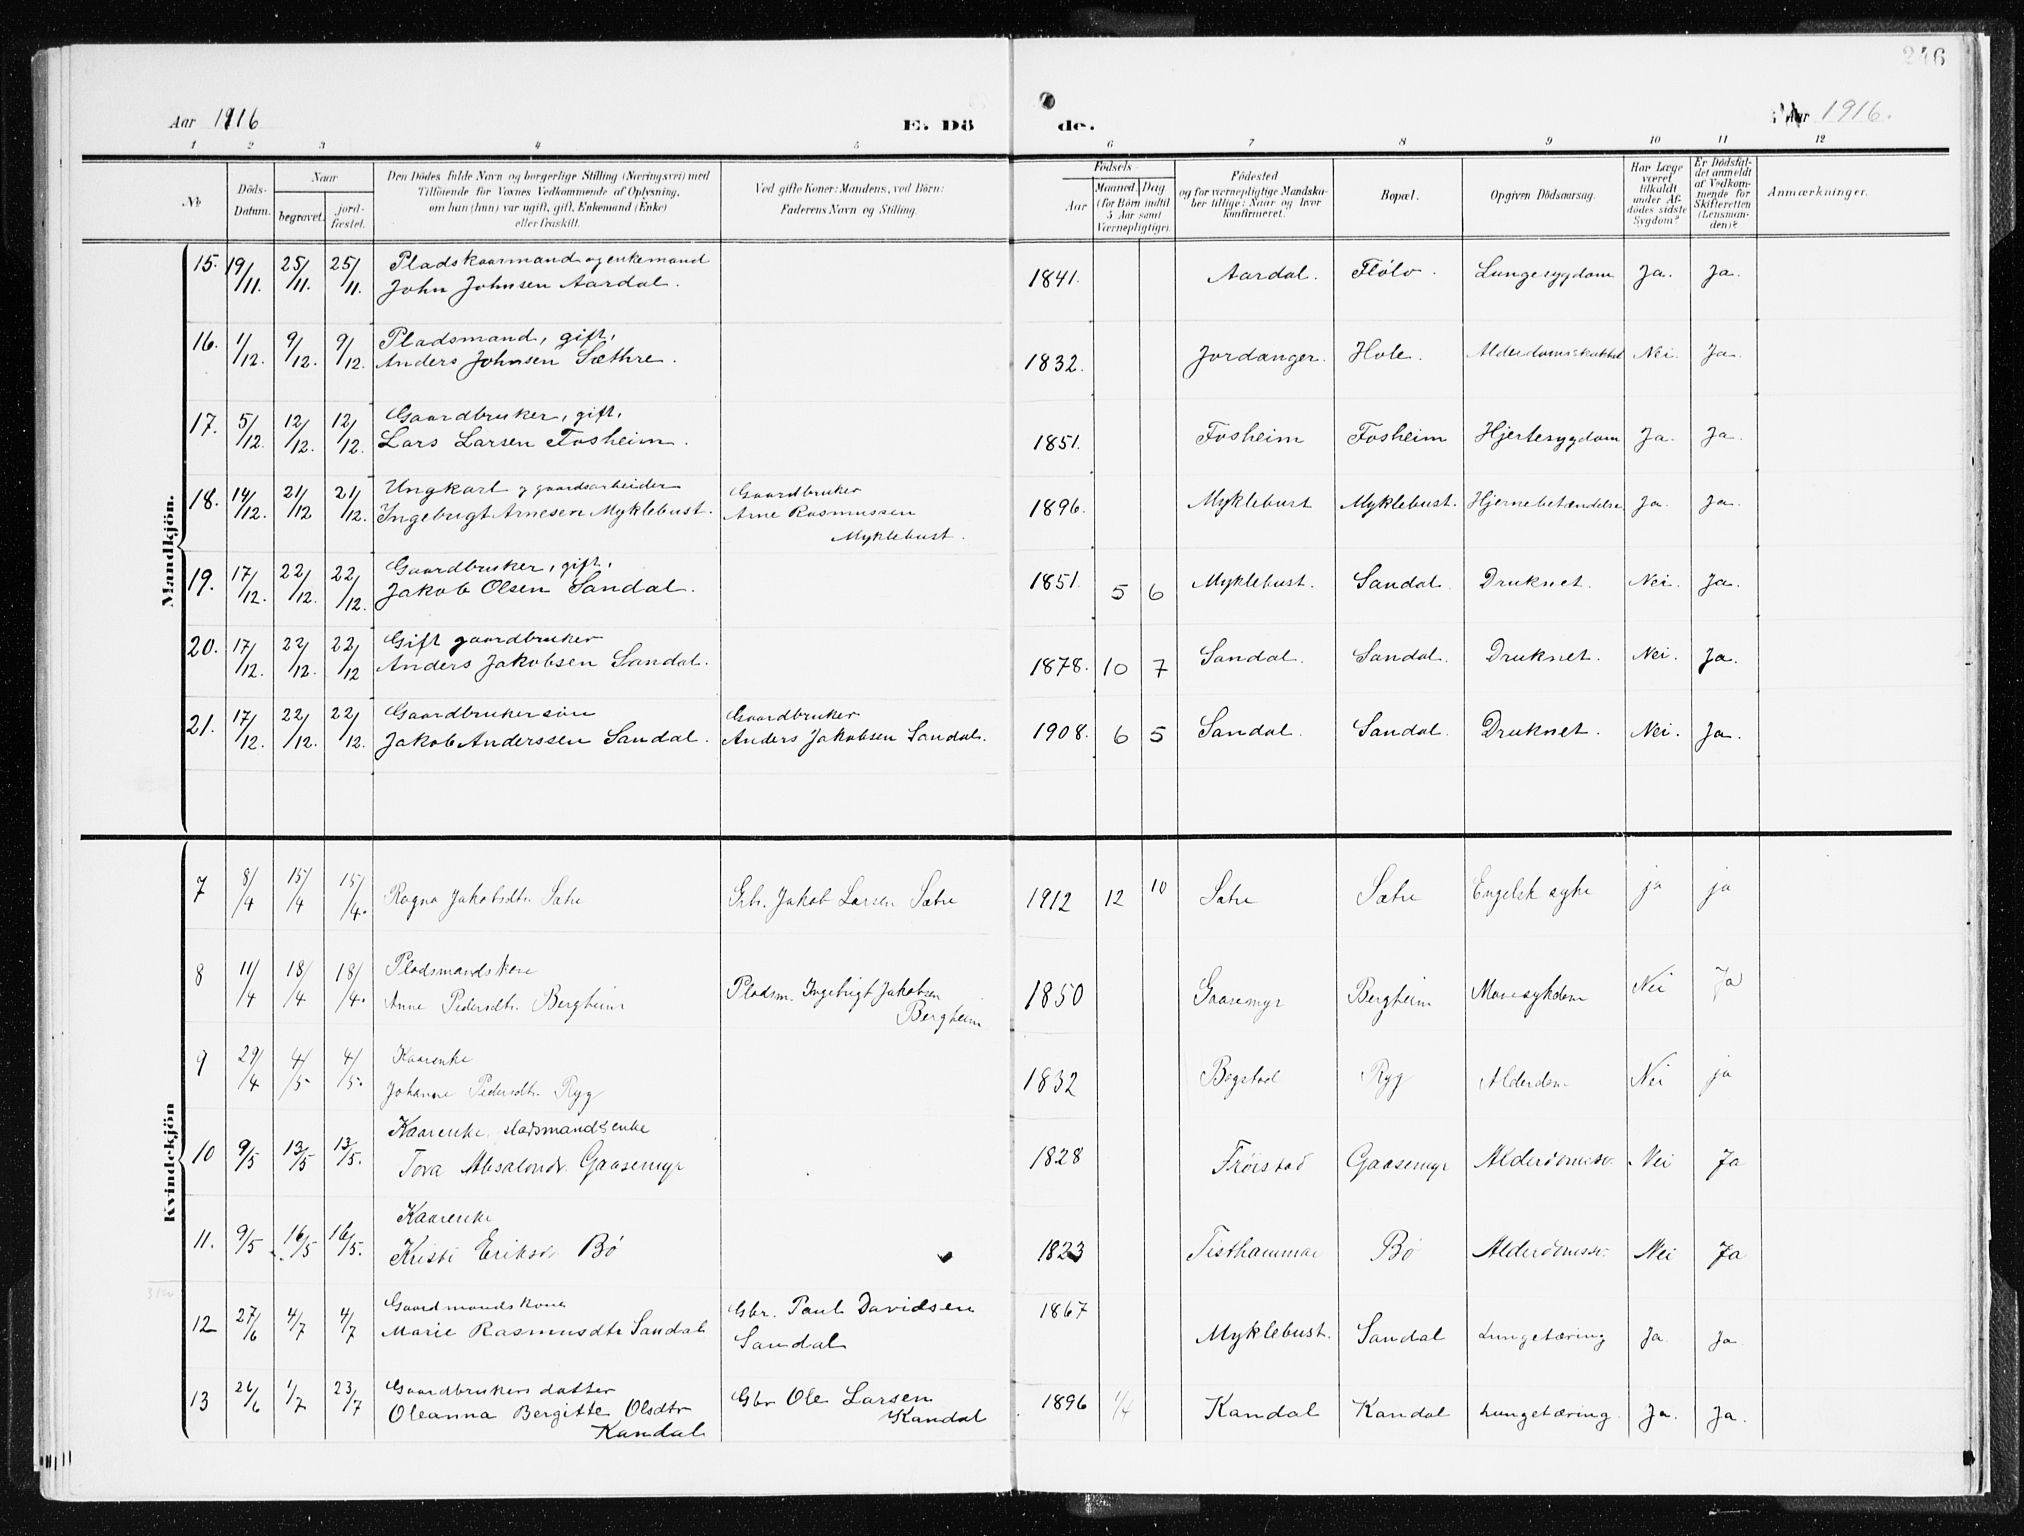 246
Aar 1916
E. Dö
de.
Aar 1916.
1 2 3 4 5 6 7 8 9 10 11 12
No
Döds-Datum.
Naar
begravet.
jord-fæstet.
Den Dödes fulde Navn og borgerlige Stilling (Næringsvei) med
Tilföiende for Voxnes Vedkommende af Oplysning,
om han (hun) var ugift, gift, Enkemand (Enke)
eller fraskilt.
Ved gifte Koner: Mandens, ved Börn:
Faderens Navn og Stilling.
Födsels-
Aar
Maaned. Dag
(for Börn indtil
5 Aar samt
Værnepligtige).
Födested
og for værnepligtige Mandska-
ber tillige: Naar og hvor
konfirmeret.
Bopæl.
Opgiven Dödsaarsag.
Har Læge
været
tilkaldt
under Af-
dödes sidste
Sygdom?
Er Dödsfal-
det anmeldt
af Vedkom-
mende for
Skifteretten
(Lensman-
den)?
Anmærkninger.
Mandkjön.
15. 19/11. 25/11. 25/11. Pladskaarmand og enkemand
John Johnsen Aardal. 1841. Aardal. Flølo. Lungesygdom Ja. Ja.
16. 1/12. 9/12. 9/12. Pladsmand, gift,
Anders Johnsen Sæthre. 1832. Jordanger. Hole. Nei. Ja.
17. 5/12. 12/12. 12/12. Gaardbruker, gift,
Lars Larsen Fosheim. 1851. Fosheim Fosheim Hjertesygdom Ja. Ja.
18. 14/12. 21/12 21/12. Ungkarl og gaardsarbeider
Ingebrigt Arnesen Myklebust. Gaardbruker
Arne Rasmussen
Myklebust. 1896. Myklebust Myklebust. Hjernebetændelse Ja. Ja.
19. 17/12. 22/12. 22/12. Gaardbruker, gift,
Jakob Olsen Sandal. 1851. 5 6 Myklebust. Sandal. Druknet. Nei. Ja.
20. 17/12. 22/12. 22/12 Gift gaardbruker
Anders Jakobsen Sandal. 1878. 10 7 Sandal. Sandal. Druknet. Nei. Ja.
21. 17/12. 22/12. 22/12. Gaardbrukersøn
Jakob Anderssen Sandal. Gaardbruker
Anders Jakobsen Sandal. 1908. 6 5 Sandal. Sandal. Druknet. Nei. Ja.
Kvindekjön
7 8/4 15/4 15/4. Ragna Jakobsdtr. Sætre Gbr. Jakob Larsen Sætre 1912 12 10 Sætre Sætre Engelsk syke ja ja
8 11/4 18/4 18/4. Pladsmandskone
Anne Pedersdtr. Bergheim Pladsm. Ingebrigt Jakobsen
Bergheim 1850 Gaasemyr Bergheim Mavesykdom Nei Ja
9 29/4 4/5 4/5. Kaarenke
Johanne Pedersdtr. Ryg 1832 Bogstad Ryg Alderdom Nei ja
10 9/5 13/5 13/5. Kaarenke, pladsmandsenke
Tova Absalonds. Gaasemyr 1828 Frøistad Gaasemyr Alderdomssv. Nei Ja
11. 9/5 16/5 16/5. Kaarenke
Kristi Eriksd. Bø 1823 Tisthammar Bø Alderdomssv. Nei Ja
12 27/6 4/7 4/7 Gaardmandskone
Marie Rasmusdtr Sandal Gbr. Paul Davidsen
Sandal 1867 Myklebust. Sandal Lungetæring Ja. Ja
13 26/6 1/7 23/7 Gaardbrukers datter
Oleanna Bergitte Olsdtr
Kandal Gbr Ole Larsen
Kandal 1896 1/4 Kandal Kandal Lungetæring. Ja. Ja.